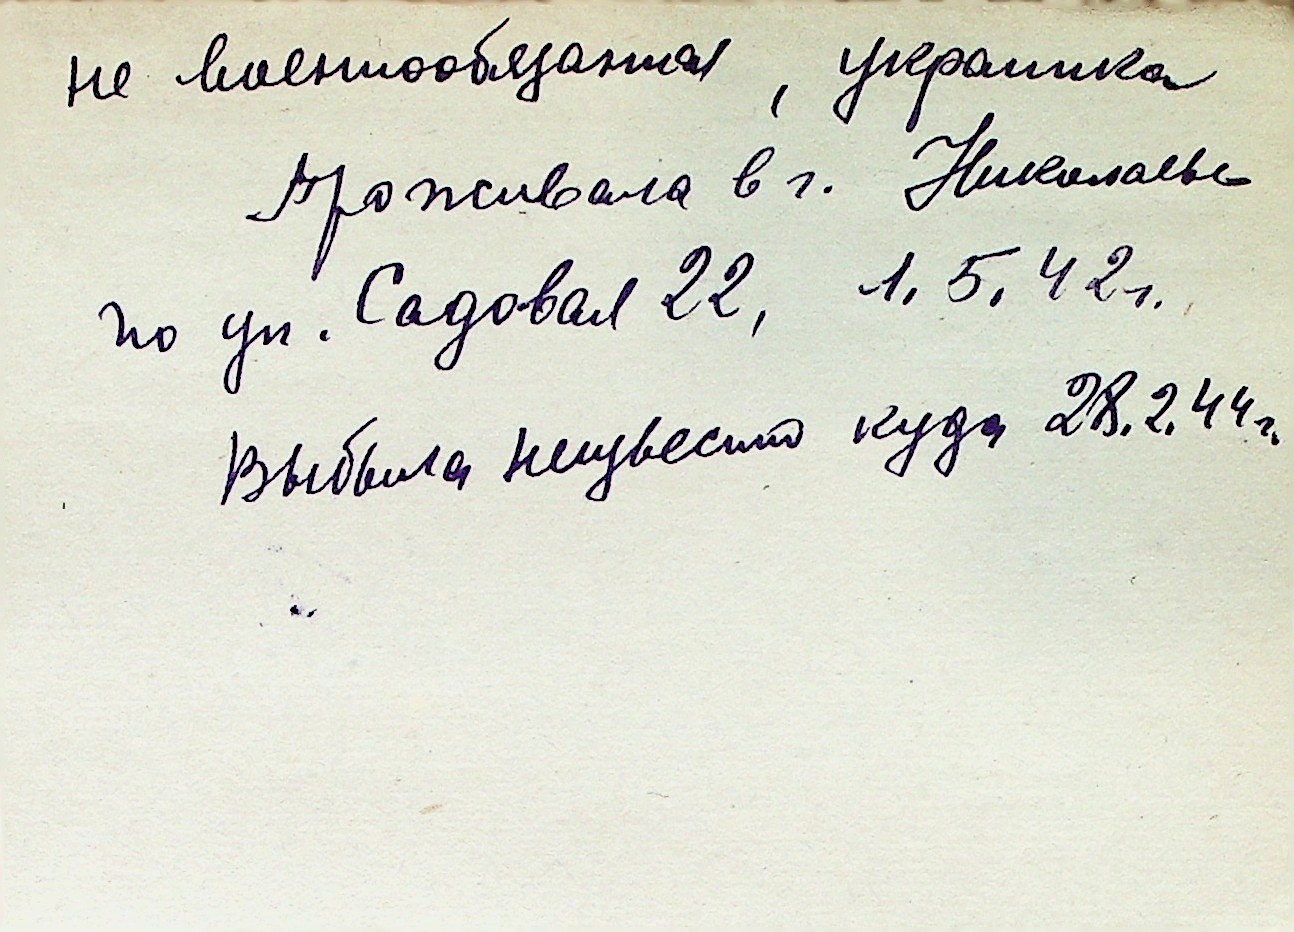 не военнообязанная, украинка
Проживала в г. Николаеве
по ул. Садовая 22, 1.5.42г.
Выбыла неизвестно куда 28.2.44г.